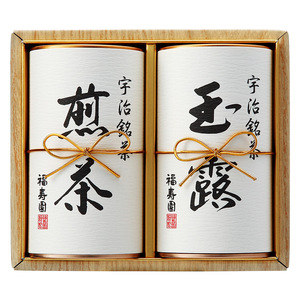 宇治銘茶
玉露
福寿園
宇治銘茶
煎茶
福寿園